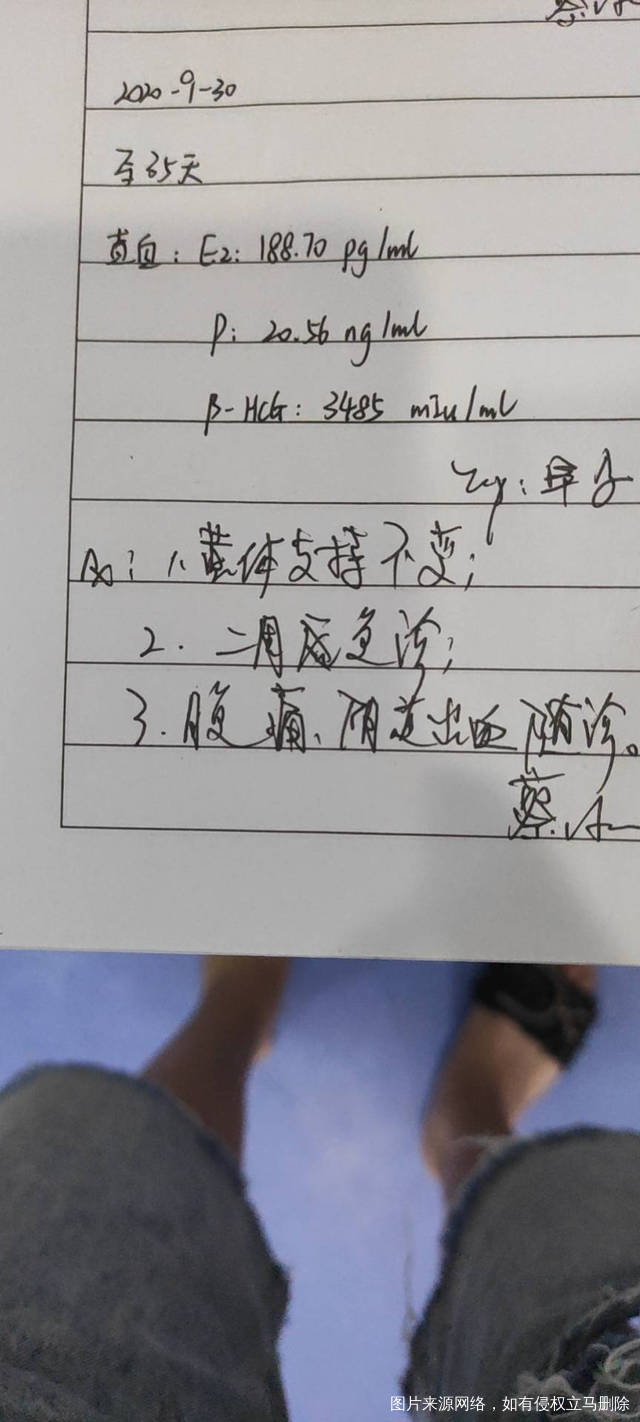 蔡
2020-9-30
至35天
查血：E2：188.70 pg/ml
P：20.56 ng/ml
β-HCG：3485 mIu/ml
：早孕
1、黄体支持不变；
2. 二周后复诊；
3. 腹痛、阴道出血随诊。
蔡
图片来源网络，如有侵权立马删除